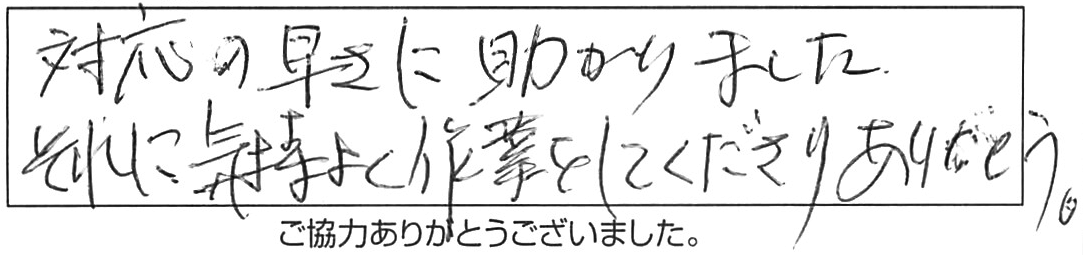 対応の早さに助かりました
それに気持よく作業をしてくださりありがとう。
ご協力ありがとうございました。